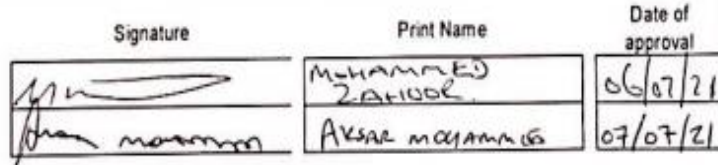 Signature Print Name Date of approval
MOHAMMED ZAHOOR. 06/07/21
AKSAR MOHAMMED 07/07/21